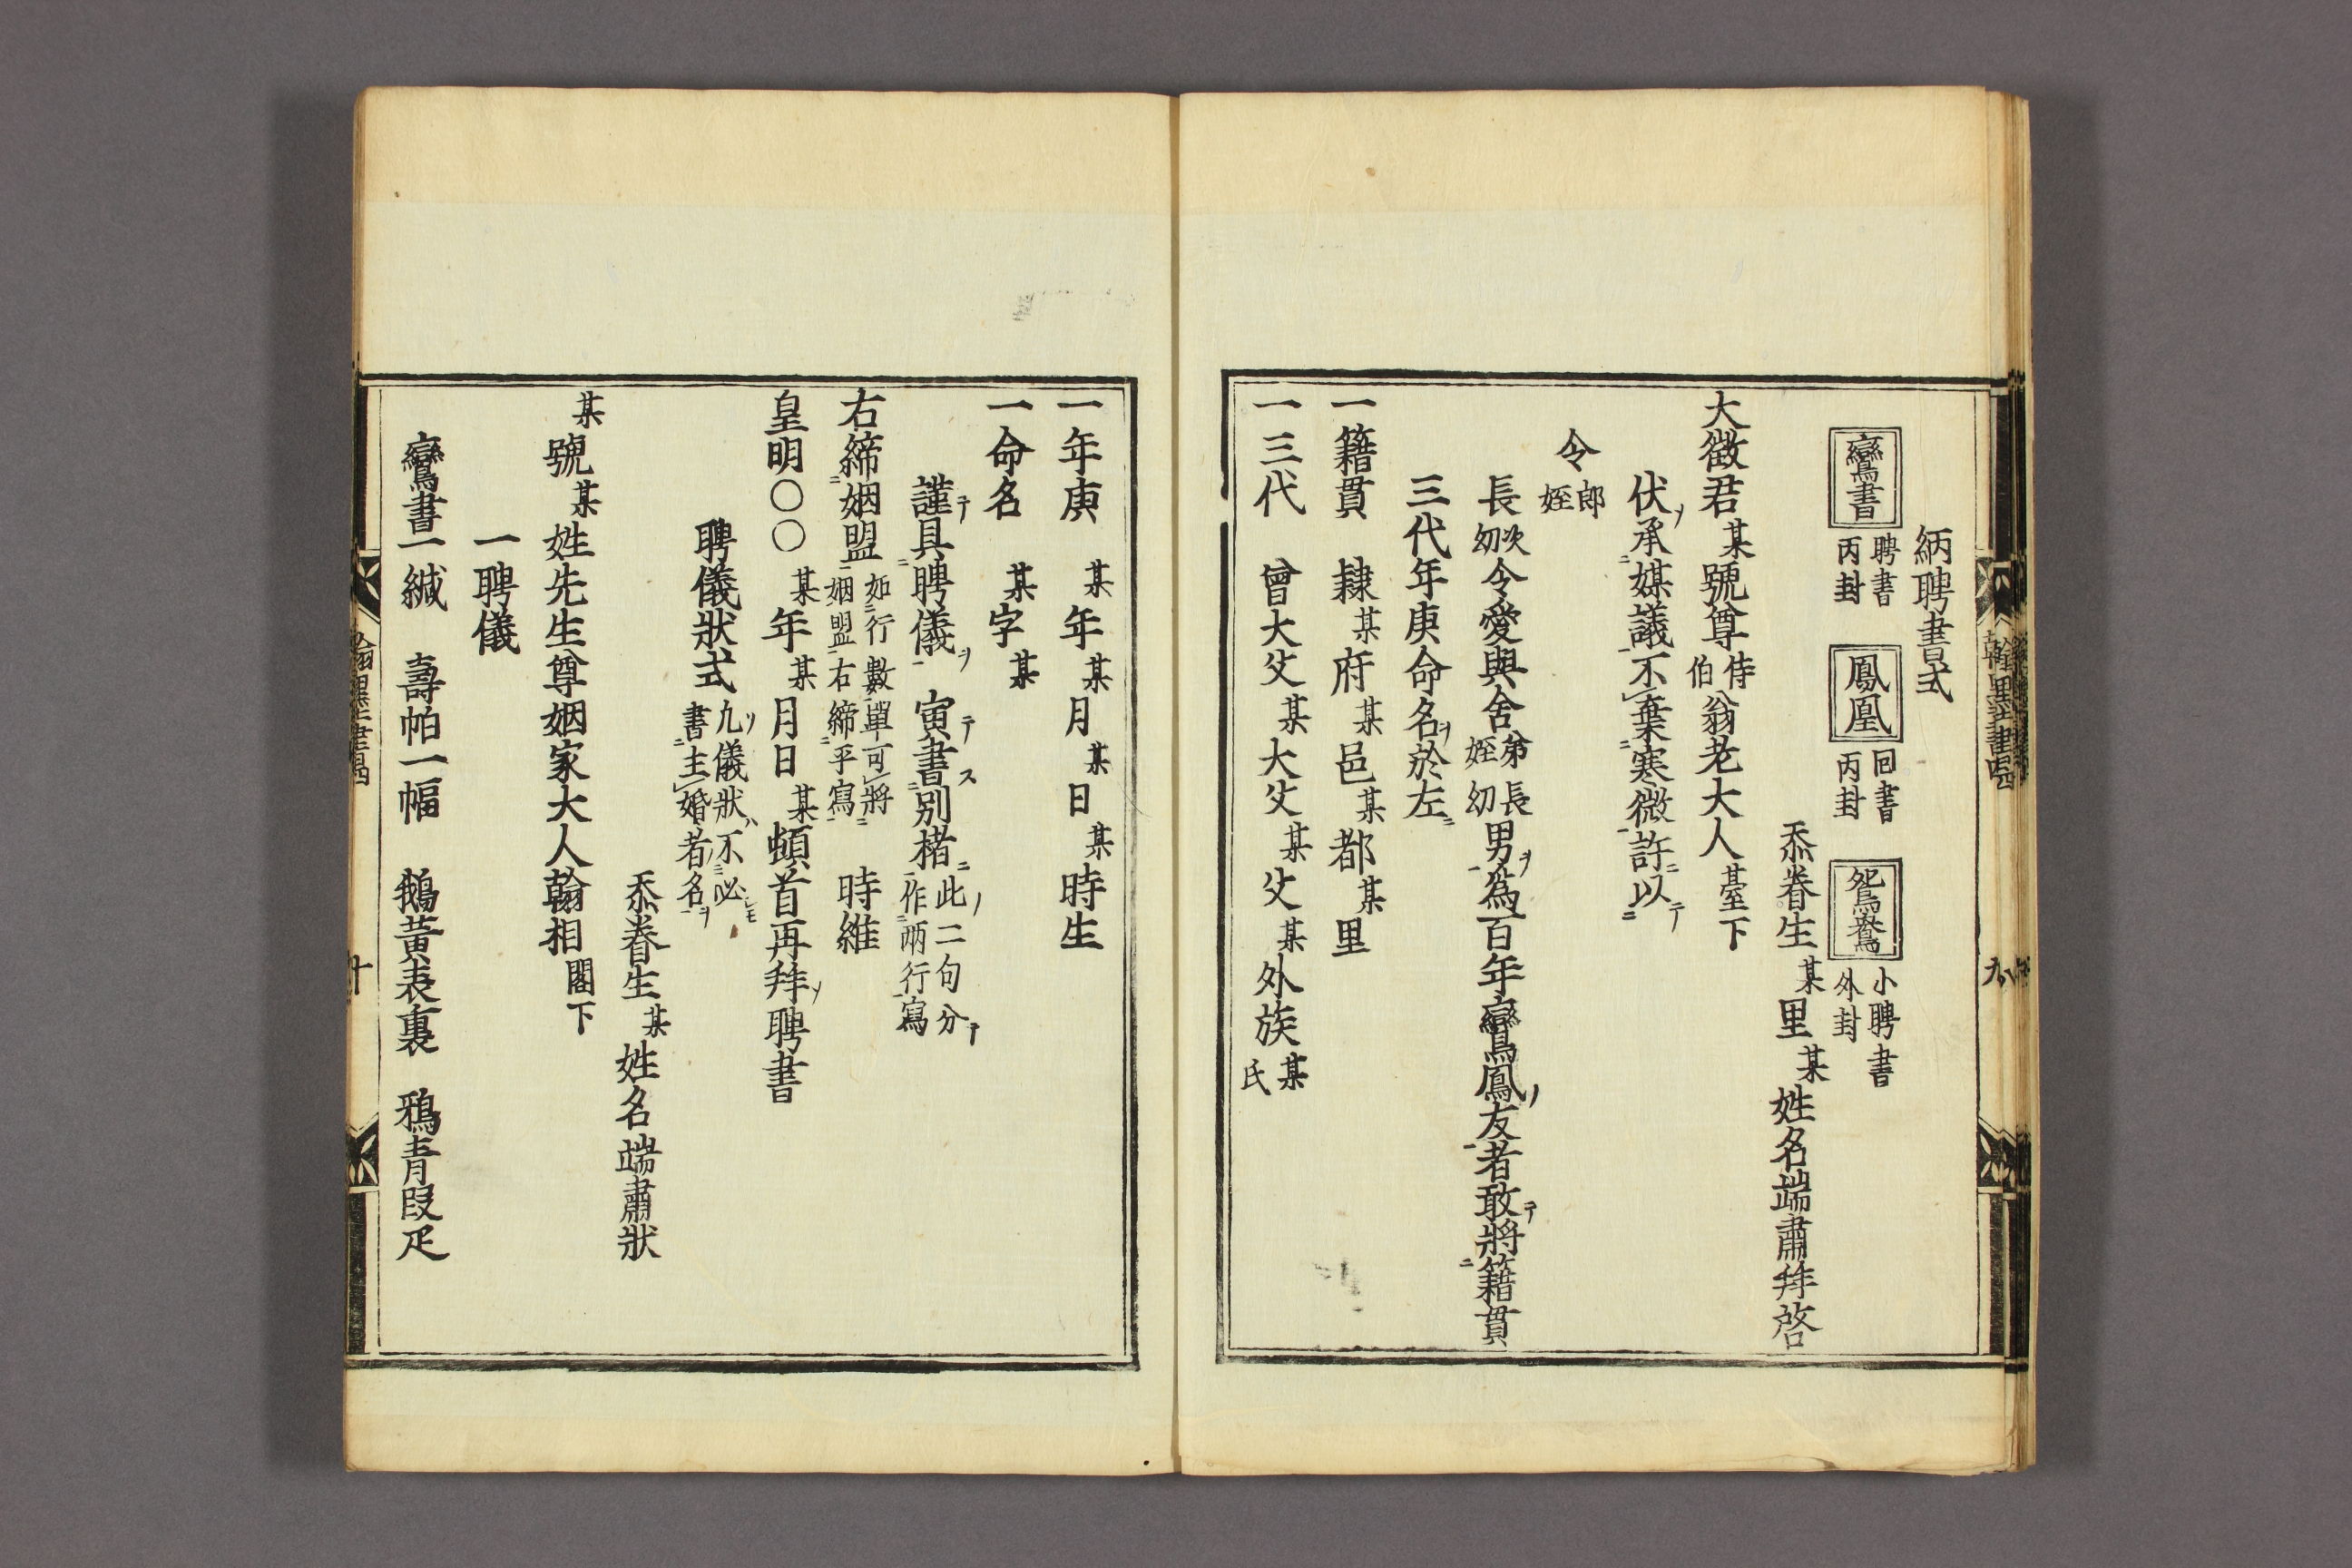 納聘書式
鸞書 聘書丙封 鳳凰 回書丙封 鴛鴦 小聘書外封
忝眷生某里某姓名端肅拜啓
大徵君某號尊侍伯翁老大人臺下
伏承媒議不棄寒微許以
令郎姪
長次幼令愛與舍弟姪長幼男為百年鸞鳳友者敢將籍貫
三代年庚命名於左
一籍貫 隸某府某邑某都某里
一三代 曾大父某大父某父某外族某氏
一年庚 某年某月某日某時生
一命名 某字某
謹具聘儀 寅書別楮 此二句分作兩行寫
右締姻盟 如行數單可將姻盟右締平寫 時維
皇明○○某年某月日某頓首再拜聘書
聘儀狀式 凡儀狀不必書主婚者名
忝眷生某姓名端肅狀
某號某姓先生尊姻家大人翰相閣下
一聘儀
鸞書一緘 壽帕一幅 鵝黃表裏 鴉青段疋